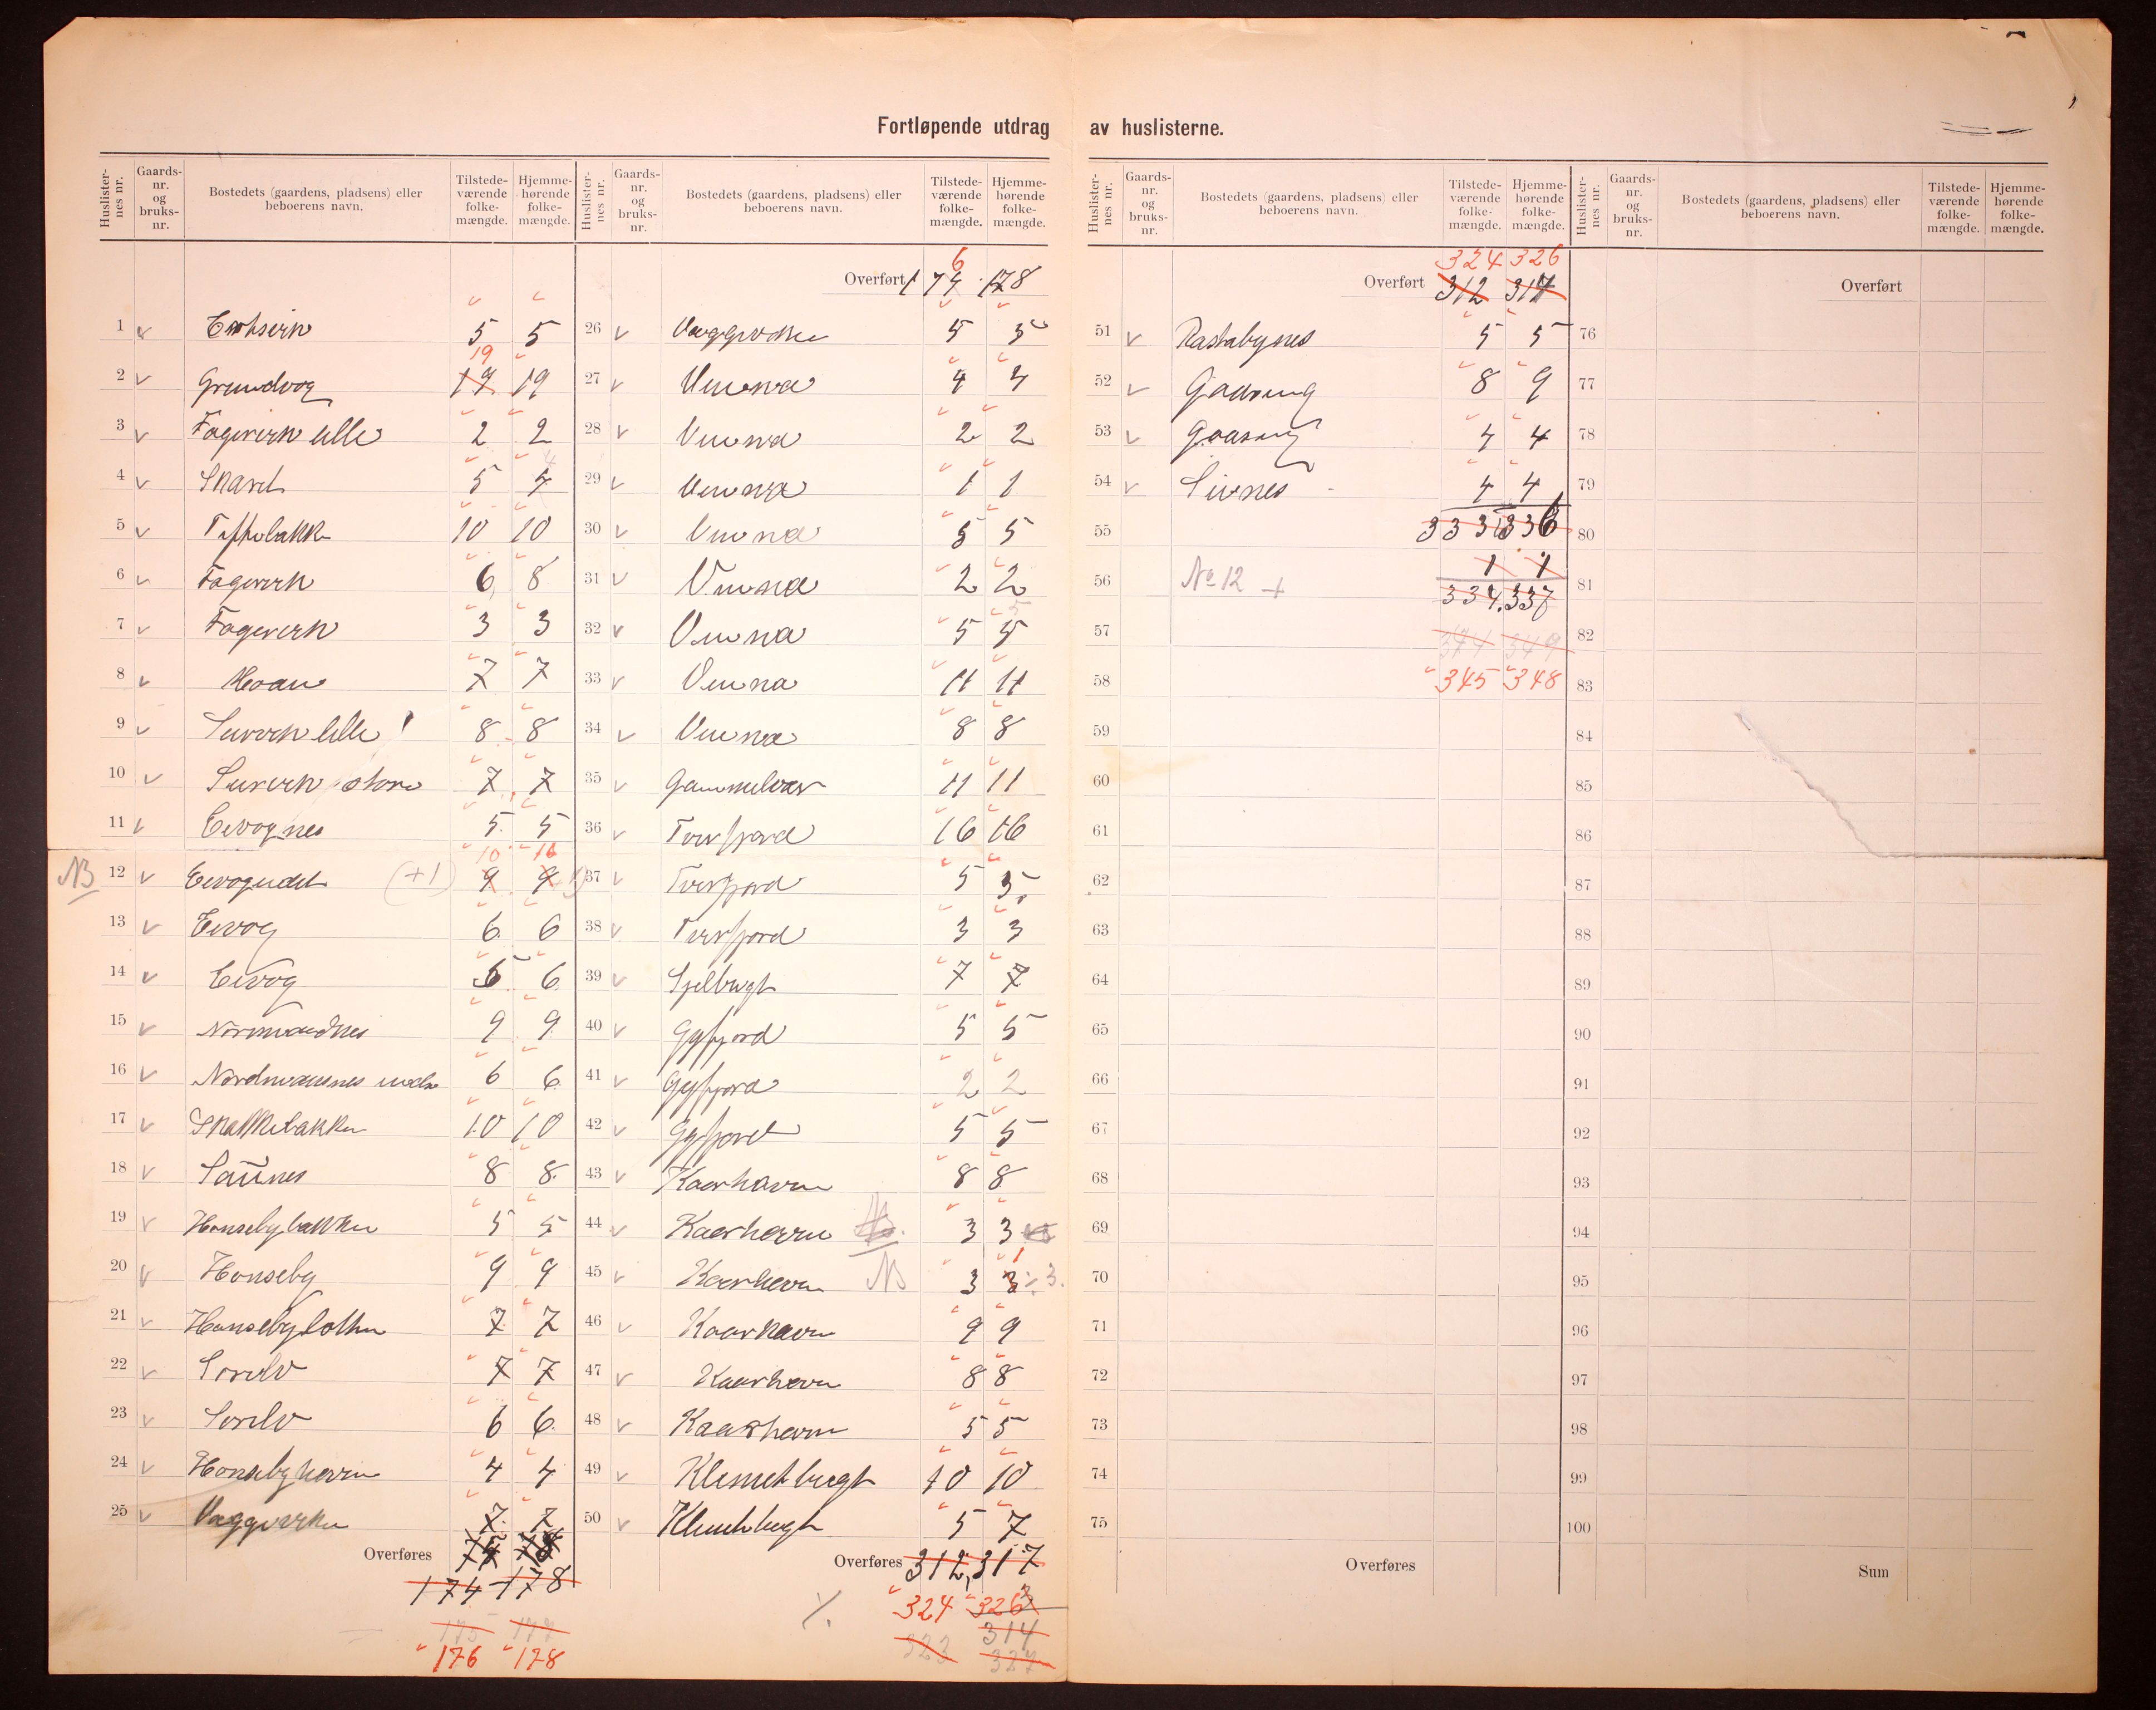 Fortløpende utdrag av huslisterne.
Huslister-nes nr. Gaards-nr. og bruks-nr. Bostedets (gaardens, pladsens) eller beboerens navn. Tilstede-værende folke-mængde. Hjemme-hørende folke-mængde.
1 v 5 5
2 v Grundvog 19 17 19
3 v Fagervik lille 2 2
4 v Skarvel 5 4
5 v Tyffebakk 10 10
6 v Fagervik 6 8
7 v Fagervik 3 3
8 v 7 7
9 v Survik lille 8 8
10 v Survik store 7 7
11 v Eivognes 5 5
NB 12 v Eivogeidet (+1) 10 10 9 9
13 v Eivog 6 6
14 v Eivog 5 6
15 v Normandnes 9 9
16 v 6 6
17 v Skalkebakken 10 10
18 v Saünes 8 8
19 v Honsebybakken 5 5
20 v Honseby 9 9
21 v 7 7
22 v Sorelv 7 7
23 v Sorelv 6 6
24 v Honsebyhavn 4 4
25 v 7 7
Overføres
174 178
175 177
176 178
Huslister-nes nr. Gaards-nr. og bruks-nr. Bostedets (gaardens, pladsens) eller beboerens navn. Tilstede-værende folke-mængde. Hjemme-hørende folke-mængde.
Overført 6 174 178
26 v 5 5
27 v Vinna 4 4
28 v Vinna 2 2
29 v Vinna 1 1
30 v Vinna 5 5
31 v Vinna 2 2
32 v Vinna 5 5
33 v Vinna 11 11
34 v Vinna 8 8
35 v Gammelvær 11 11
36 v Torfjord 16 16
37 v Torfjord 5 5
38 v Torfjord 3 3
39 v Spelbugt 7 7
40 v Gyfjord 5 5
41 v Gyfjord 2 2
42 v Gyfjord 5 5
43 v Kaarhavn 8 8
44 v Kaarhavn 3 3
45 v Kaarhavn NB 3 3 1 ÷3.
46 v Kaarhavn 9 9
47 v Kaarhavn 8 8
48 v Kaarhavn 5 5
49 v Klemetbugt 10 10
50 v Klemetbugt 5 7
Overføres 312 317
324 326
314
323 327
Huslister-nes nr. Gaards-nr. og bruks-nr. Bostedets (gaardens, pladsens) eller beboerens navn. Tilstede-værende folke-mængde. Hjemme-hørende folke-mængde.
324 326
Overført 312 317
51 v Rastabynes 5 5
52 v Gaasnes 8 9
53 v Gaasnes 4 4
54 v Sivnes 4 4
55 333 336
1 1
56 No 12 + 334. 337
57 344 349
58 345 348
59
60
61
62
63
64
65
66
67
68
69
70
71
72
73
74
75
Overføres
Huslister-nes nr. Gaards-nr. og bruks-nr. Bostedets (gaardens, pladsens) eller beboerens navn. Tilstede-værende folke-mængde. Hjemme-hørende folke-mængde.
Overført
76
77
78
79
80
81
82
83
84
85
86
87
88
89
90
91
92
93
94
95
96
97
98
99
100
Sum